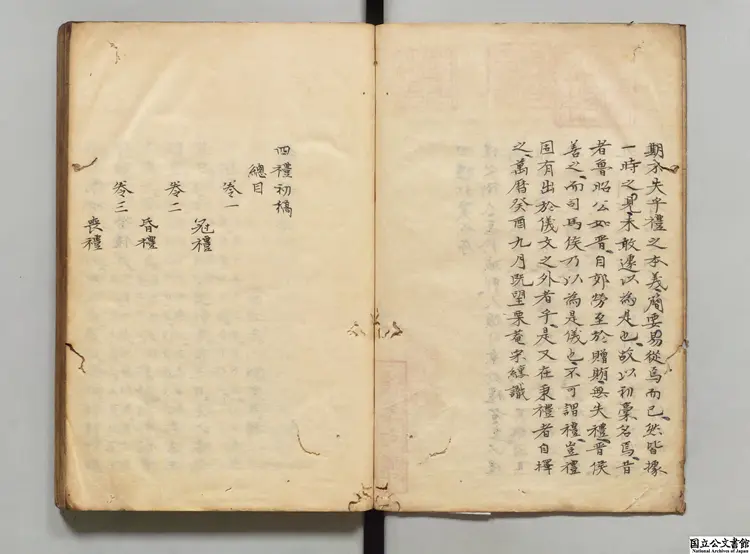 期不失乎禮之本義簡要易從焉而已然皆據
一時之見未敢遽以為是也故以初藁名焉昔
者魯昭公如晋自郊勞至於贈賄無失禮晋侯
善之而司馬侯乃以為是儀也不可謂禮豈禮
固有出於儀文之外者乎是又在秉禮者自擇
之萬曆癸酉九月既望栗菴宋纁識
四禮初稿
總目
卷一
冠禮
卷二
昏禮
卷三
喪禮
国立公文書館
National Archives of Japan